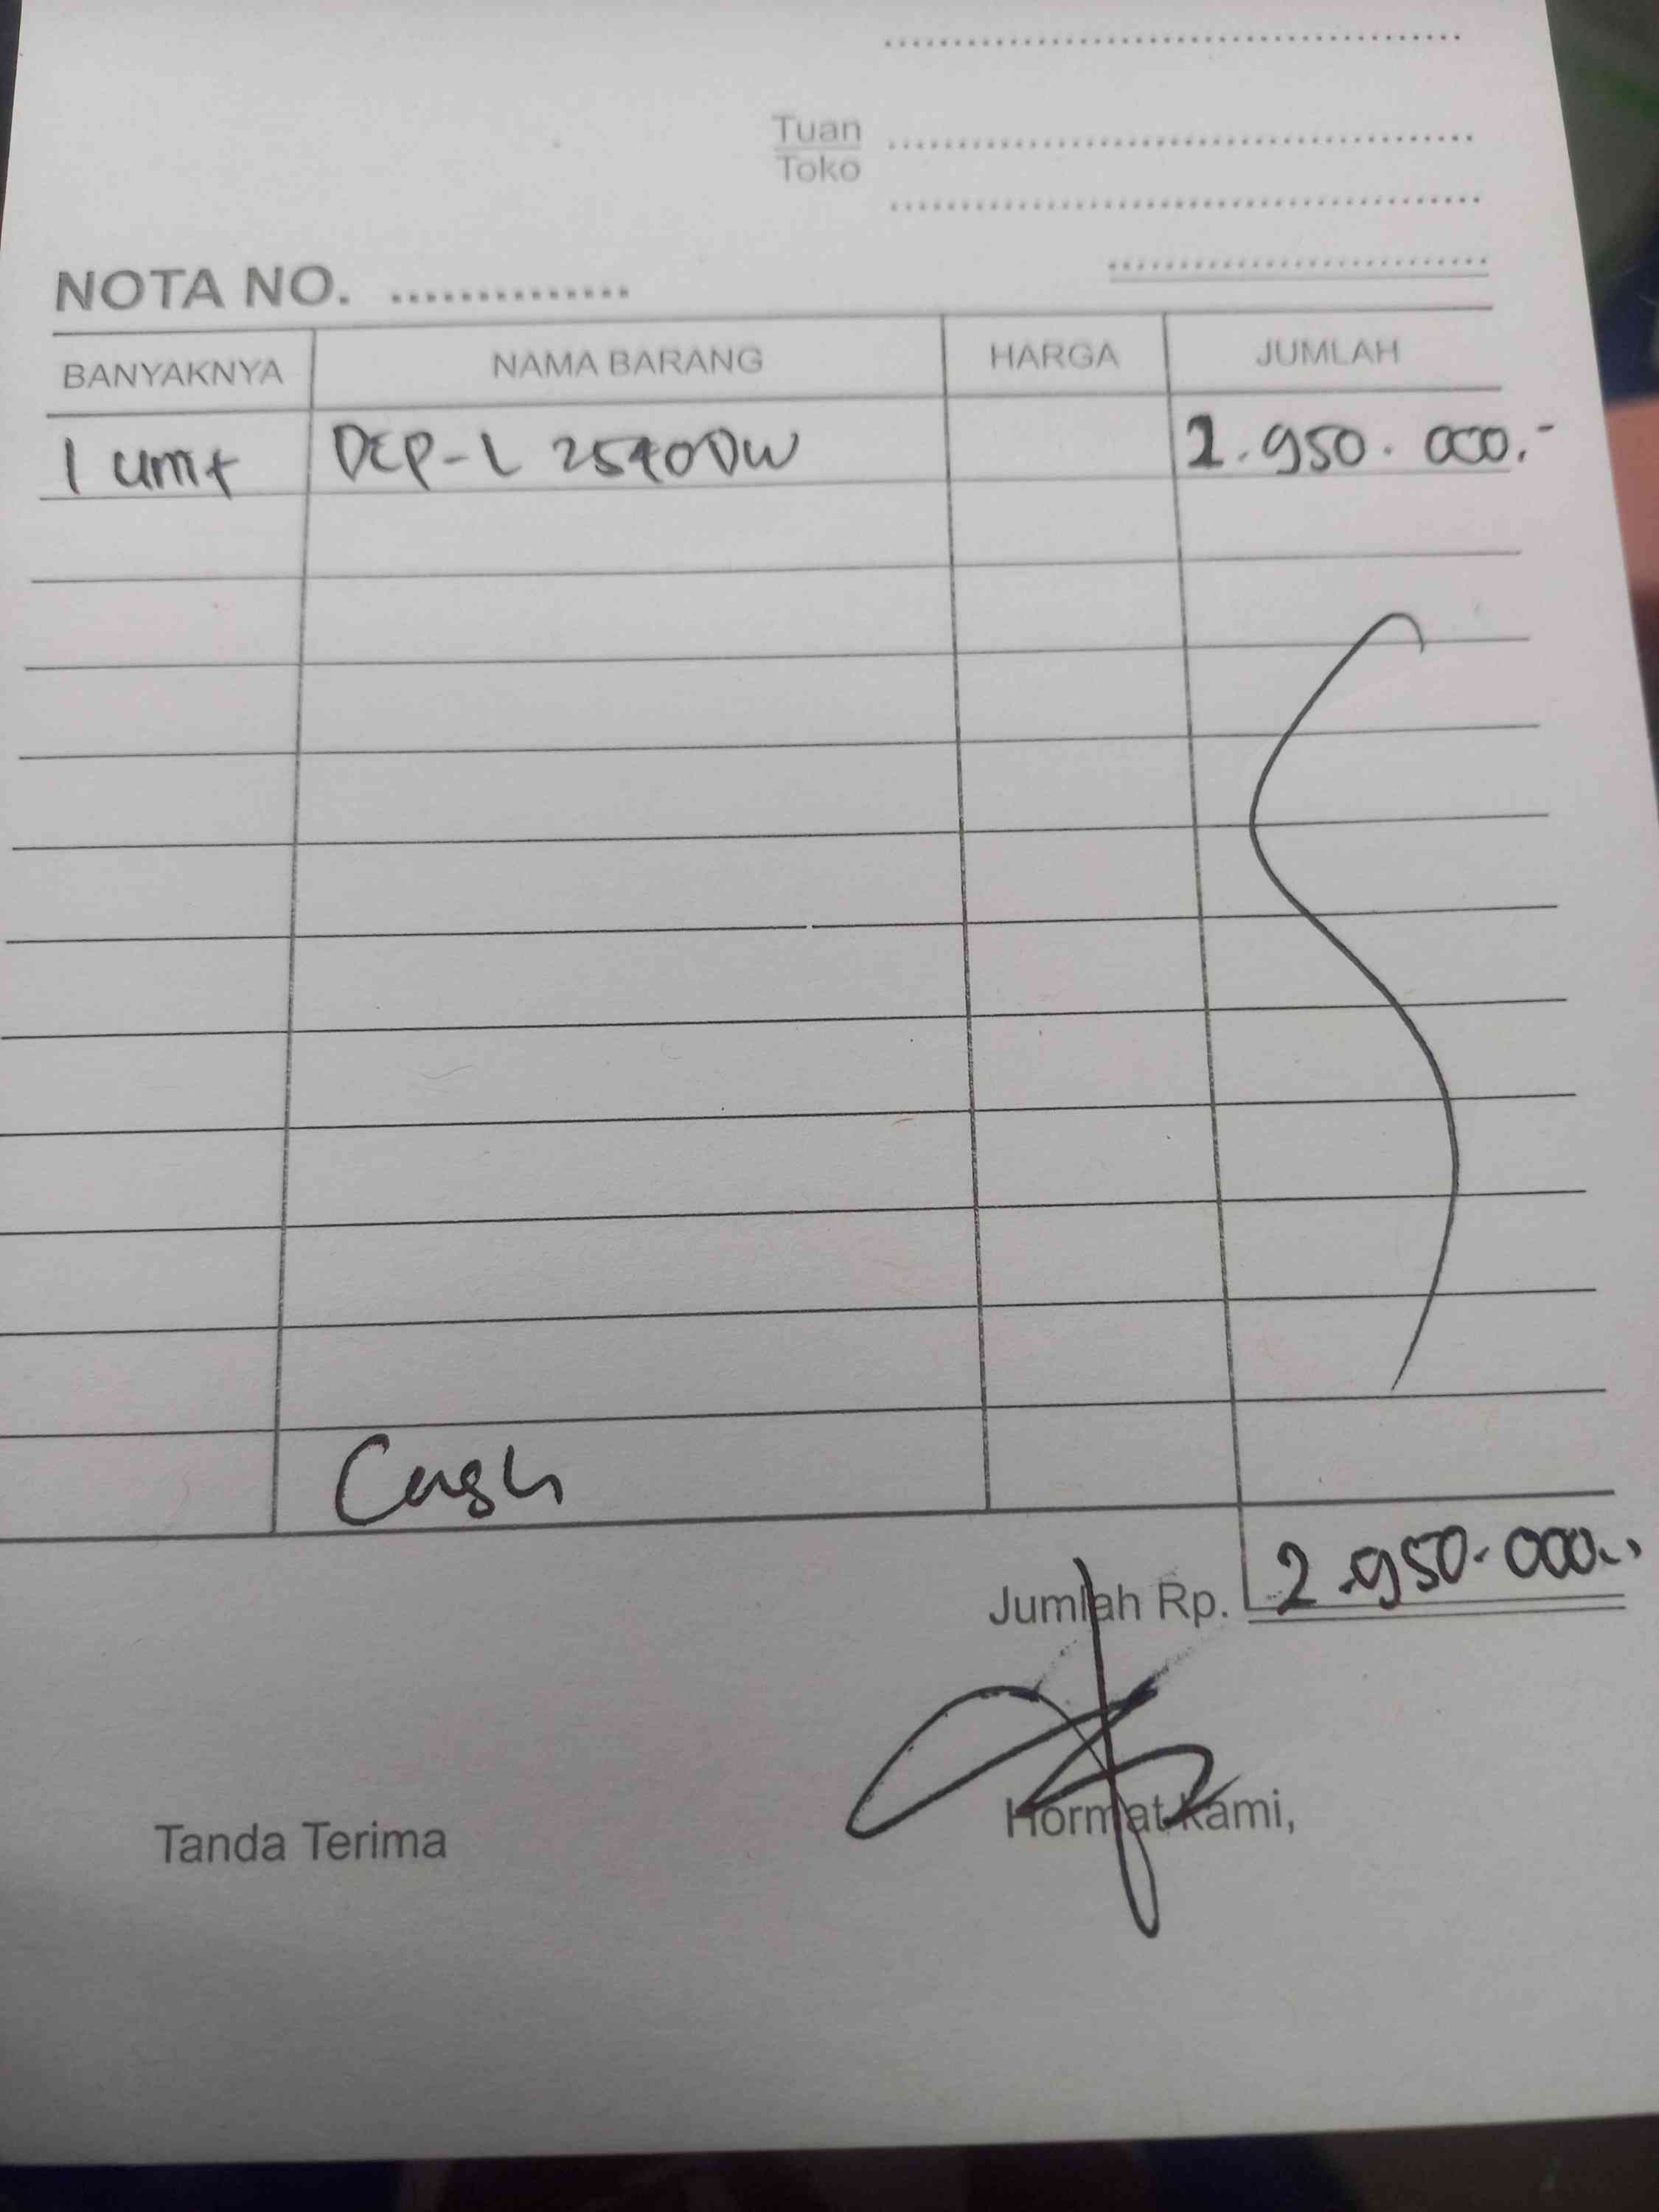 Tuan
Toko
NOTA NO. ..............
BANYAKNYA NAMA BARANG HARGA JUMLAH
1 unit DCP-L 2540DW 2.950.000.-
Cash
Jumlah Rp. 2.950.000.-
Tanda Terima Hormat kami,